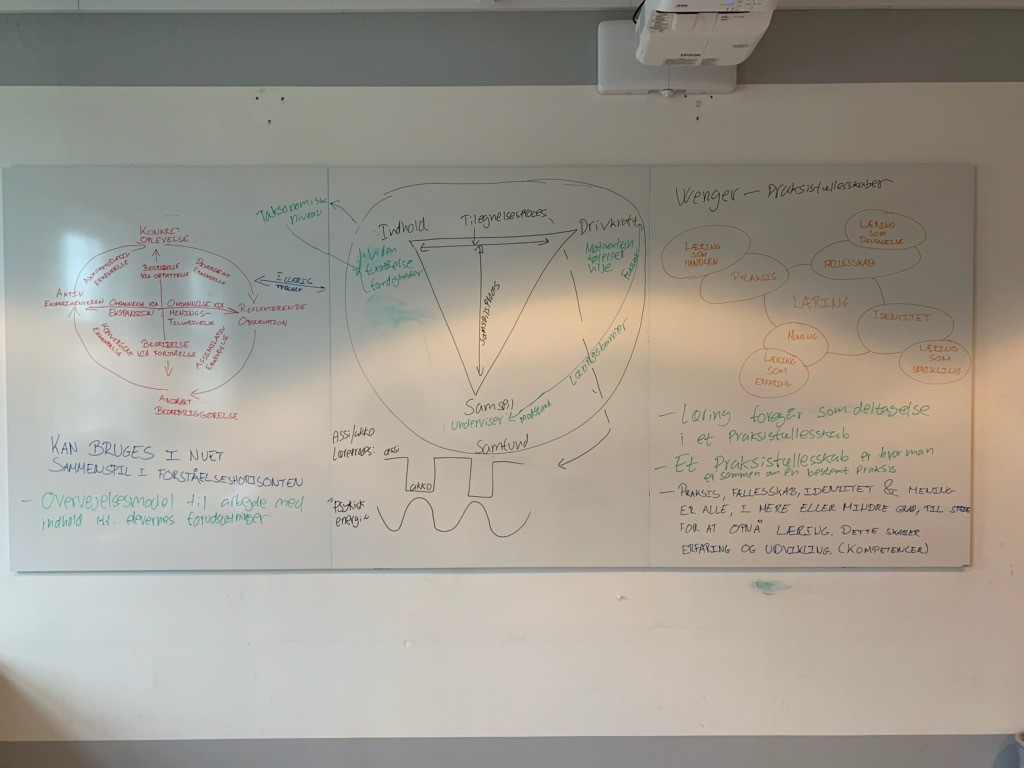 EPSON
KONKRET
OPLEVELSE
AKKOMODATIV
ERKENDELSE
DIVERGENT
ERKENDELSE
BEGRIBELSE
VIA OPFATTELSE
AKTIV
EKSPERIMENTEREN
OMDANNELSE VIA
EKSPANSION
OMDANNELSE VIA
MENINGS-
TILSKRIVELSE
REFLEKTERENDE
OBSERVATION
KONVERGENT
ERKENDELSE
BEGRIBELSE
VIA FORSTÅELSE
ASSIMILATIV
ERKENDELSE
ABSTRAKT
BEGREBSLIGGØRELSE
ILLERIS
KAN BRUGES I NUET
SAMMENSPIL I FORSTÅELSESHORISONTEN
- Overvejelsesmodel til arbejde med
indhold elevernes forudsætninger
Taksonomisk
niveau
Indhold
Tilegnelsesproces
Drivkraft
Viden
forståelse
færdigheder
Motivation
følelser
vilje
Samspilsproces
Samspil
underviser
modstand
Samfund
Assi/akko
Læreproces:
assi
akko
Psykisk
energi:
Wenger - Praksisfællesskaber
LÆRING
SOM
HANDLEN
PRAKSIS
LÆRING
SOM
DELTAGELSE
FÆLLESSKAB
LÆRING
IDENTITET
LÆRING
SOM
UDVIKLING
MENING
LÆRING
SOM
ERFARING
- Læring foregår som deltagelse
i et Praksisfællesskab
- Et Praksisfællesskab er hvor man
er sammen om en bestemt praksis
- PRAKSIS, FÆLLESSKAB, IDENTITET & MENING
ER ALLE, I MERE ELLER MINDRE GRAD, TIL STEDE
FOR AT OPNÅ LÆRING. DETTE SKABER
ERFARING OG UDVIKLING. (KOMPETENCER)